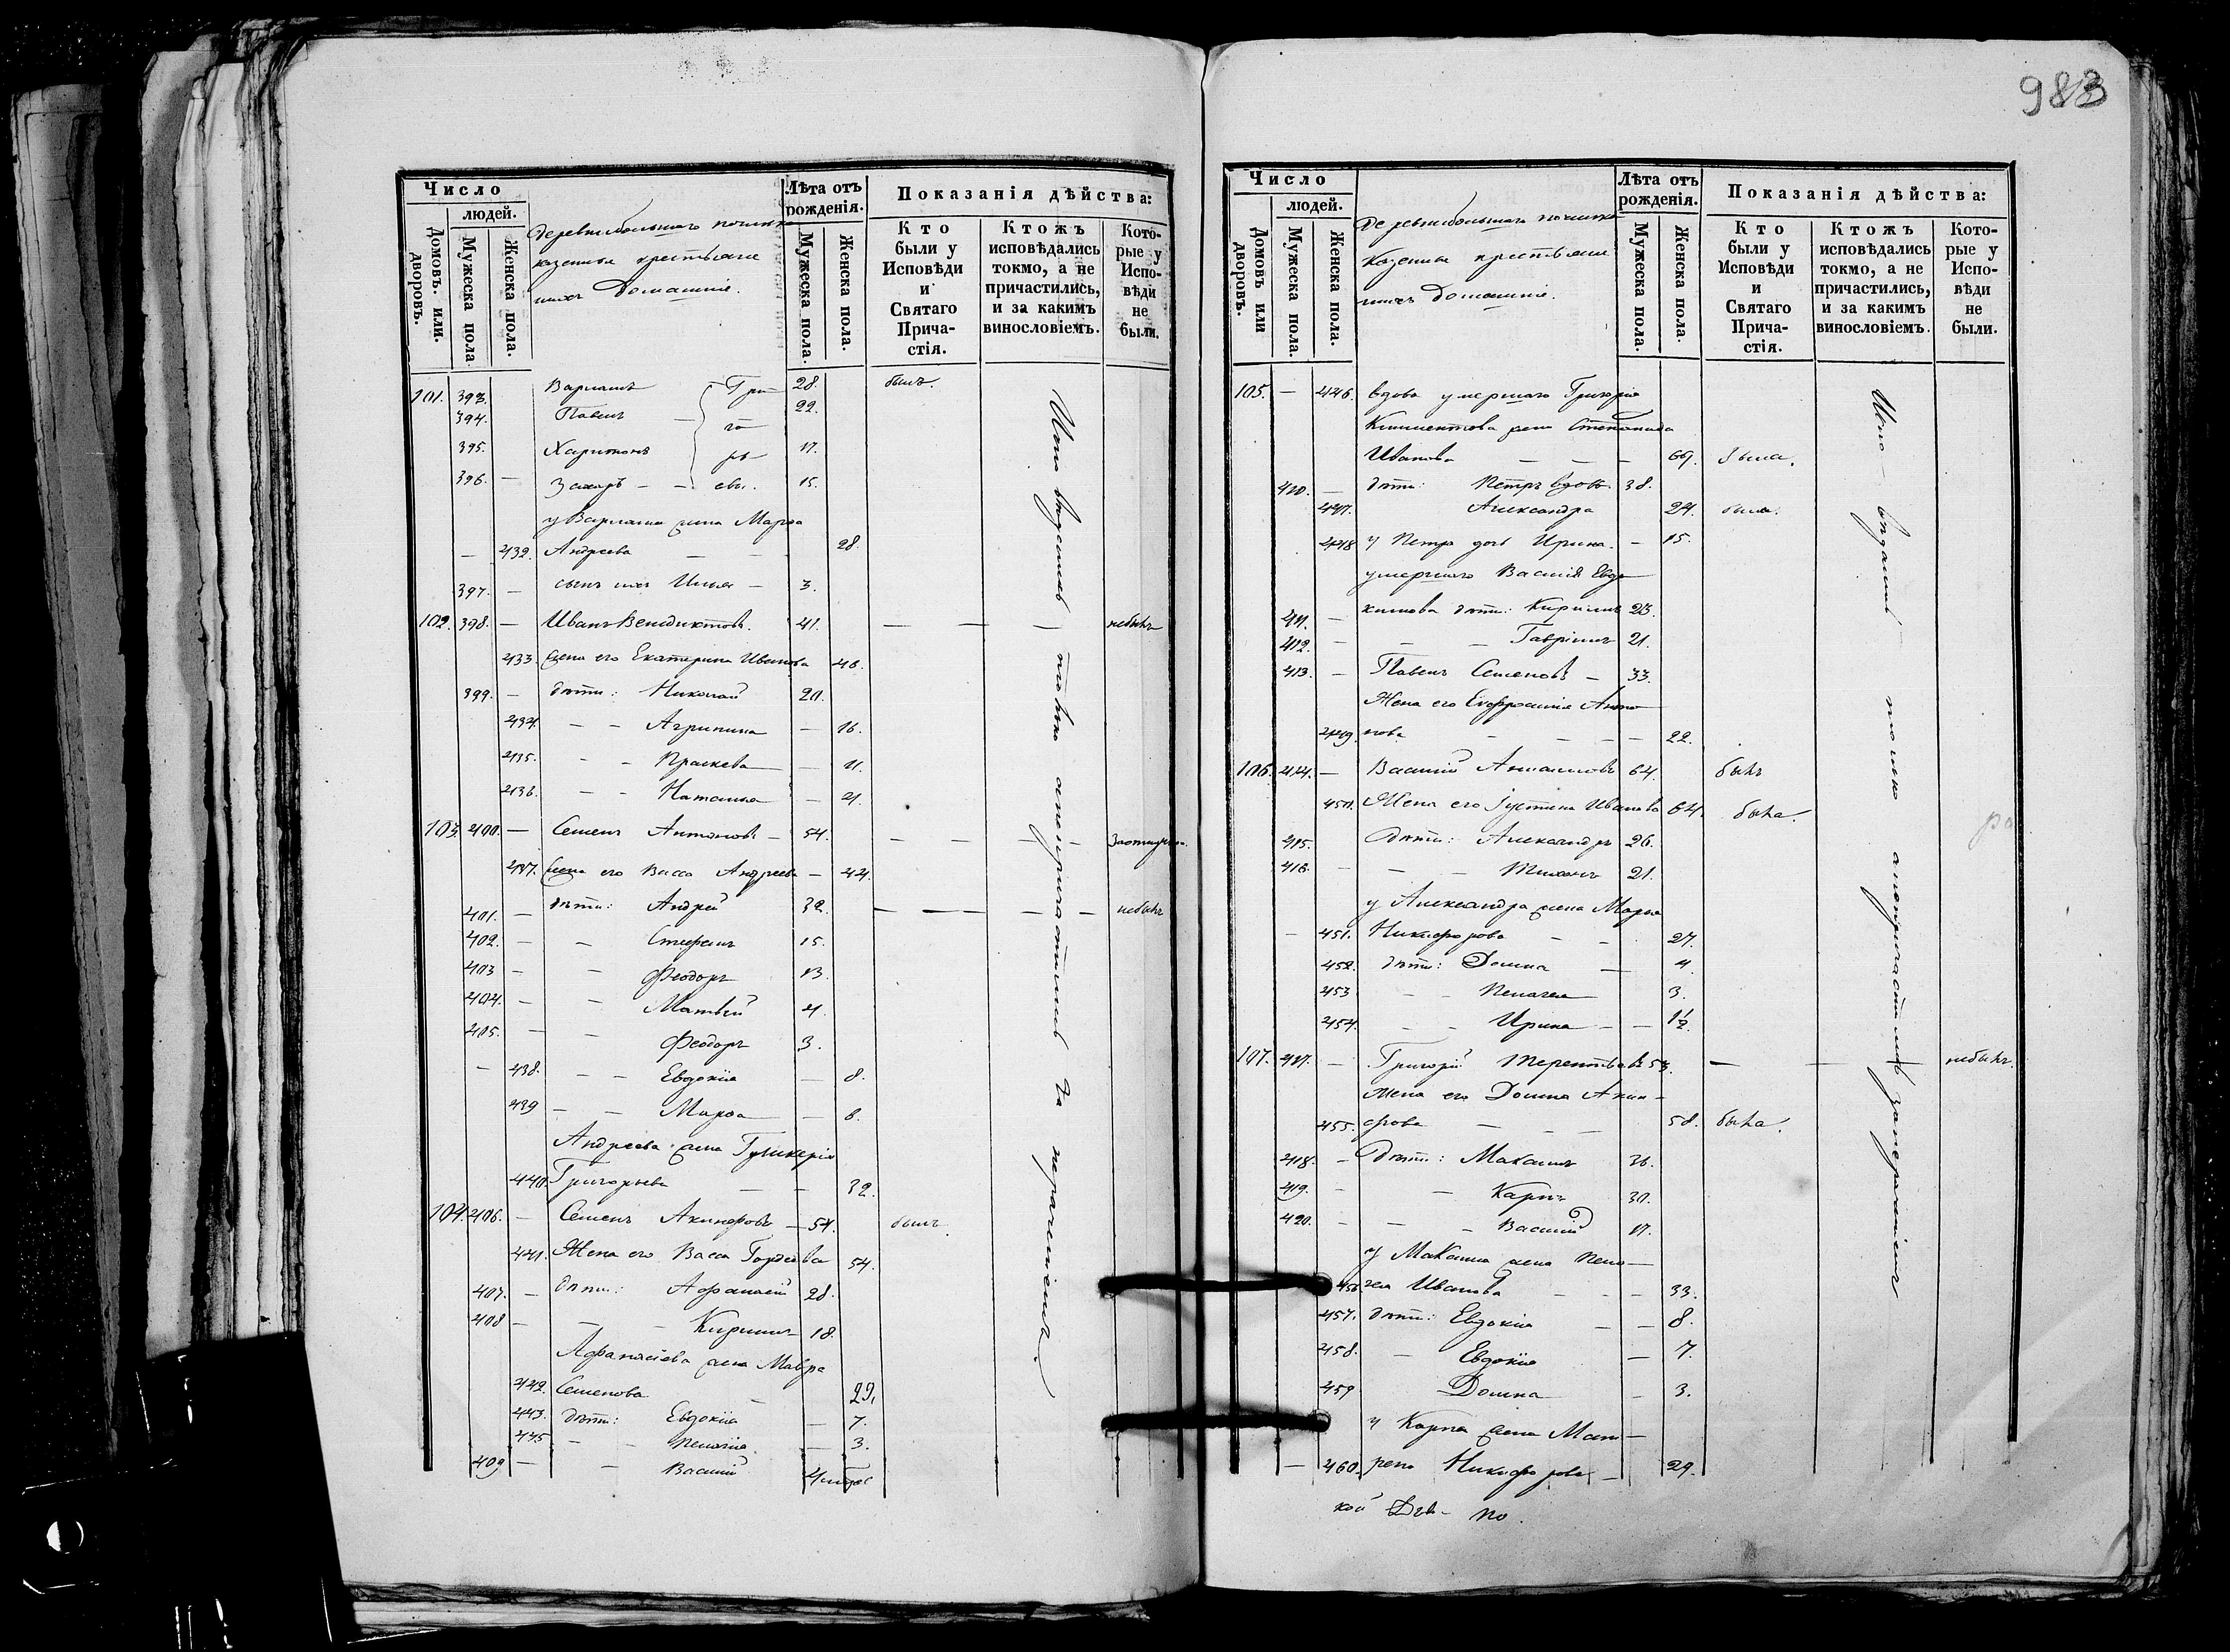 983
Число
людей.
Домовъ. или. дворовъ.
Мужеска пола
Женска пола.
Деревни большаго починка
казенные крестьяне
и ихъ домашніе.
Лѣта отъ рожденія.
Мужеска пола.
Женска пола.
Показанія дѣйства:
Кто были у Исповѣди и Святаго Прича-стія.
Ктожъ исповѣдались токмо, а не причастились, и за какимъ винословіемъ.
Кото-рые у Испо-вѣди не были.
101. 393. Варламъ Гри 28. былъ.
394. Павелъ го 22.
395. Харитонъ рь 17.
396. — Захаръ — — евы. 15.
у Варлама жена Марѳа
— 432. Андреева — — 28.
397. — сынъ ихъ Илья — 3.
102. 398. — Иванъ Венидиктовъ. 41. — — — небылъ
433. жена его Екатерина Иванова 46.
399. — дѣти: Николай 20.
434. — — Агрипина — 16.
435. — — Праскева — 11.
436. — — Наталья — 4.
103. 400. — Семенъ Антоновъ — 54. — — — —
437. жена его Васса Андреева — 44.
401. — дѣти: Андрей 32. — — — — — небылъ
402. — — Стефанъ 15.
403 — — Ѳеодоръ 13.
404. — — Матвѣй 4.
405. — — Ѳеодоръ 3.
— 438. — — Евдокія — 8.
439 — — Марѳа — 6.
Андреева жена Гликерія
440. Григорьева — — 32.
104. 406. — Семенъ Акинфовъ — 54. былъ
441. Жена его Васса Гордеева 54.
407. — дѣти: Афанасій 28.
408 — — — Кирилъ 18.
Афанасіева жена Мавра
442. Семенова — 29.
443. дѣти: Евдокія — 7.
445 — — Пелагія — 3.
409 — — Василій
Ино вѣдались только а непричастились за нераченіемъ.
Число
людей.
Домовъ или дворовъ.
Мужеска пола.
Женска пола.
Деревни большаго починка
Казенные крестьяне
и ихъ домашніе.
Лѣта отъ рожденія.
Мужеска пола.
Женска пола.
Показанія дѣйства:
Кто были у Исповѣди и Святаго Прича-стія.
Ктожъ исповѣдались токмо, а не причастились, и за какимъ винословіемъ.
Кото-рые у Испо-вѣди не были.
105. — 446. вдова умершаго Григорія
Климентова жена Степанида
Иванова — — — 69. была.
410. — дѣти: Петръ вдовъ. 38.
447. Александра 24. была.
448 у Петра дочь Ирина. — 15.
умершаго Василія Евдо
кимова дѣти: Кирилъ 23.
411. —
412. — — — Гаврилъ 21.
413. — Павелъ Семеновъ — 33.
Жена его Евфросинія Анто
449. нова — — — — 22.
106. 414. — Василій Ананіновъ 64. былъ
450. Жена его Іустина Иванова 64. была.
415. Дѣти: Александръ 26.
416. — — — Тихонъ 21.
у Александра жена Марья
— 451. Никифорова — — 27.
452. дѣти: Домна — 4.
453 — — Пелагея 3.
454. — — Ирина — — 1½
107. 417. — Григорій Терентьевъ 53. — — небылъ.
Жена его Домна Акин —
455. фова — — — 58. была.
418. — Дѣти: Макаимъ 36.
419. — — Карпъ 30.
420. — — — Василій 17.
у Макаима жена Пела —
456 гея Иванова — — — 33.
457. дѣти: Евдокія — — 8.
458. — Евдокія — 7.
459 Домна — 3.
у Карпа жена Мат —
— 460. рена Никифорова — 29.